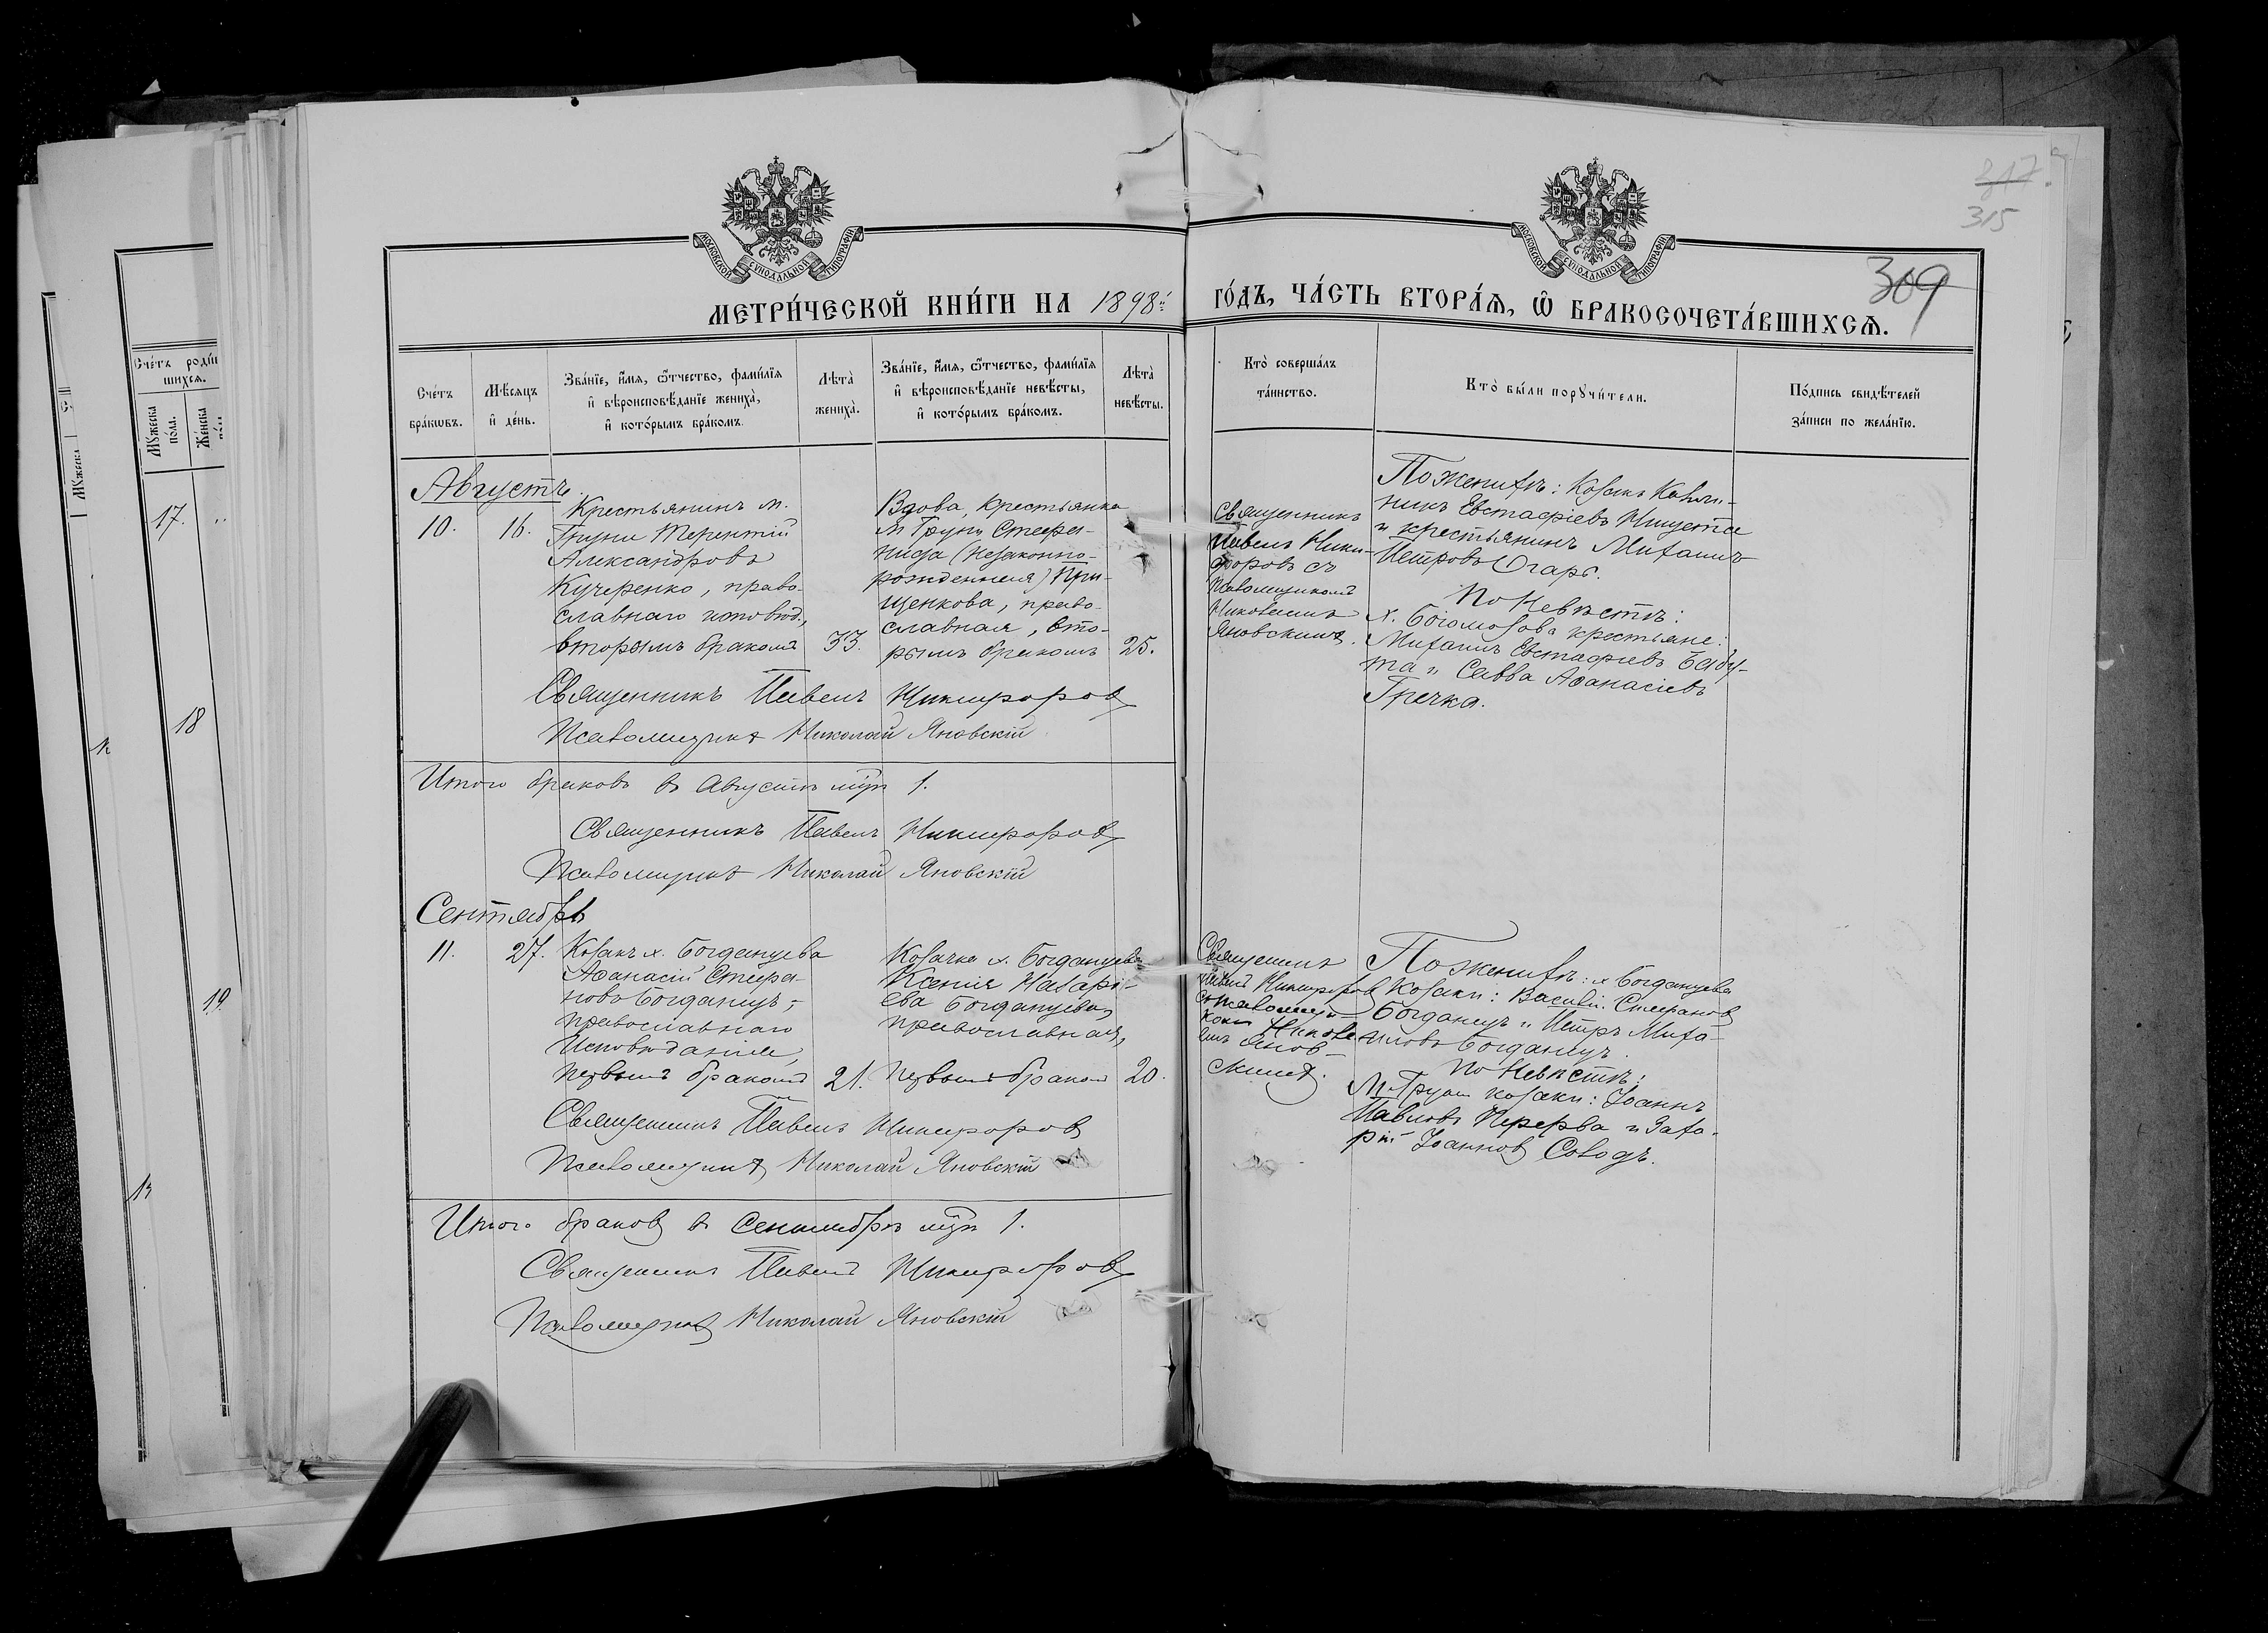 317.
315
309
МОСКОВСКОЙ СѴНОДАЛЬНОЙ ТИПОГРАФІИ
МОСКОВСКОЙ СѴНОДАЛЬНОЙ ТИПОГРАФІИ
МЕТРИ́ЧЕСКОЙ КНИ́ГИ НА 1898й
ГО́ДЪ, ЧА́СТЬ ВТОРА́Ѧ, Ѽ БРАКОСОЧЕТА́ВШИХСѦ.
Сче́тъ
бра́кѡвъ.
Мѣ́сяцъ
и҆ де́нь.
Зва́нїе, и҆́мѧ, ѻ҆́тчество, фами́лїѧ
и҆ вѣроисповѣ́данїе жениха̀,
и҆ кото́рымъ бра́комъ.
Лѣта̀
жениха̀.
Зва́нїе, и҆́мѧ, ѻ҆́тчество, фами́лїѧ
и҆ вѣроисповѣ́данїе невѣ́сты,
и҆ кото́рымъ бра́комъ.
Лѣта̀
невѣ́сты.
Кто̀ соверша́лъ
та́инство.
Кто̀ бы́ли порꙋчи́тели.
По́дпись свидѣ́телей
за́писи по жела́нїю.
Сче́тъ роди́в
шихсѧ.
Мꙋ́жеска
по́ла.
Же́нска
17. „
18
19.
Августъ.
10. 16.
Крестьянинъ м.
Груни Терентій
Александровъ
Кучеренко, право-
славнаго исповѣд.,
вторымъ бракомъ 33.
Вдова, крестьянка
м. Груни Стефа-
нида (незаконно-
рожденная) При-
щенкова, право-
славная, вто-
рымъ бракомъ 25.
Священникъ
Павелъ Ники-
форовъ съ
псаломщикомъ
Николаемъ
Яновскимъ.
По женихѣ: козакъ Калли-
никъ Евстафіевъ Нищета
и крестьянинъ Михаилъ
Петровъ Огарь.
По невѣстѣ:
х. Богомолова крестьяне:
Михаилъ Евстафіевъ Бабу-
та и Савва Афанасіевъ
Гречка.
Священникъ Павелъ Никифоровъ
Псаломщикъ Николай Яновскій
Итого браковъ въ Августѣ мцѣ 1.
Священникъ Павелъ Никифоровъ
Псаломщикъ Николай Яновскій
Сентябрь
11. 27.
Козакъ х. Богданцева
Афанасій Стефа-
новъ Богданецъ,
православнаго
исповѣданія,
первымъ бракомъ 21.
Козачка х. Богданцева
Ксенія Назарі-
ева Богданцева,
православная,
первымъ бракомъ 20.
Священникъ
Павелъ Никифоровъ
съ псаломщи-
комъ Никола-
емъ Янов-
скимъ.
По женихѣ: х. Богданцева
козаки: Василій Стефановъ
Богданецъ и Петръ Миха-
иловъ Богданецъ.
По невѣстѣ:
М. Груни козаки: Іоаннъ
Павловъ Перерва и Заха-
рій Іоанновъ Солодъ.
Священникъ Павелъ Никифоровъ
Псаломщикъ Николай Яновскій
Итого браковъ въ Сентябрѣ мцѣ 1.
Священникъ Павелъ Никифоровъ
Псаломщикъ Николай Яновскій